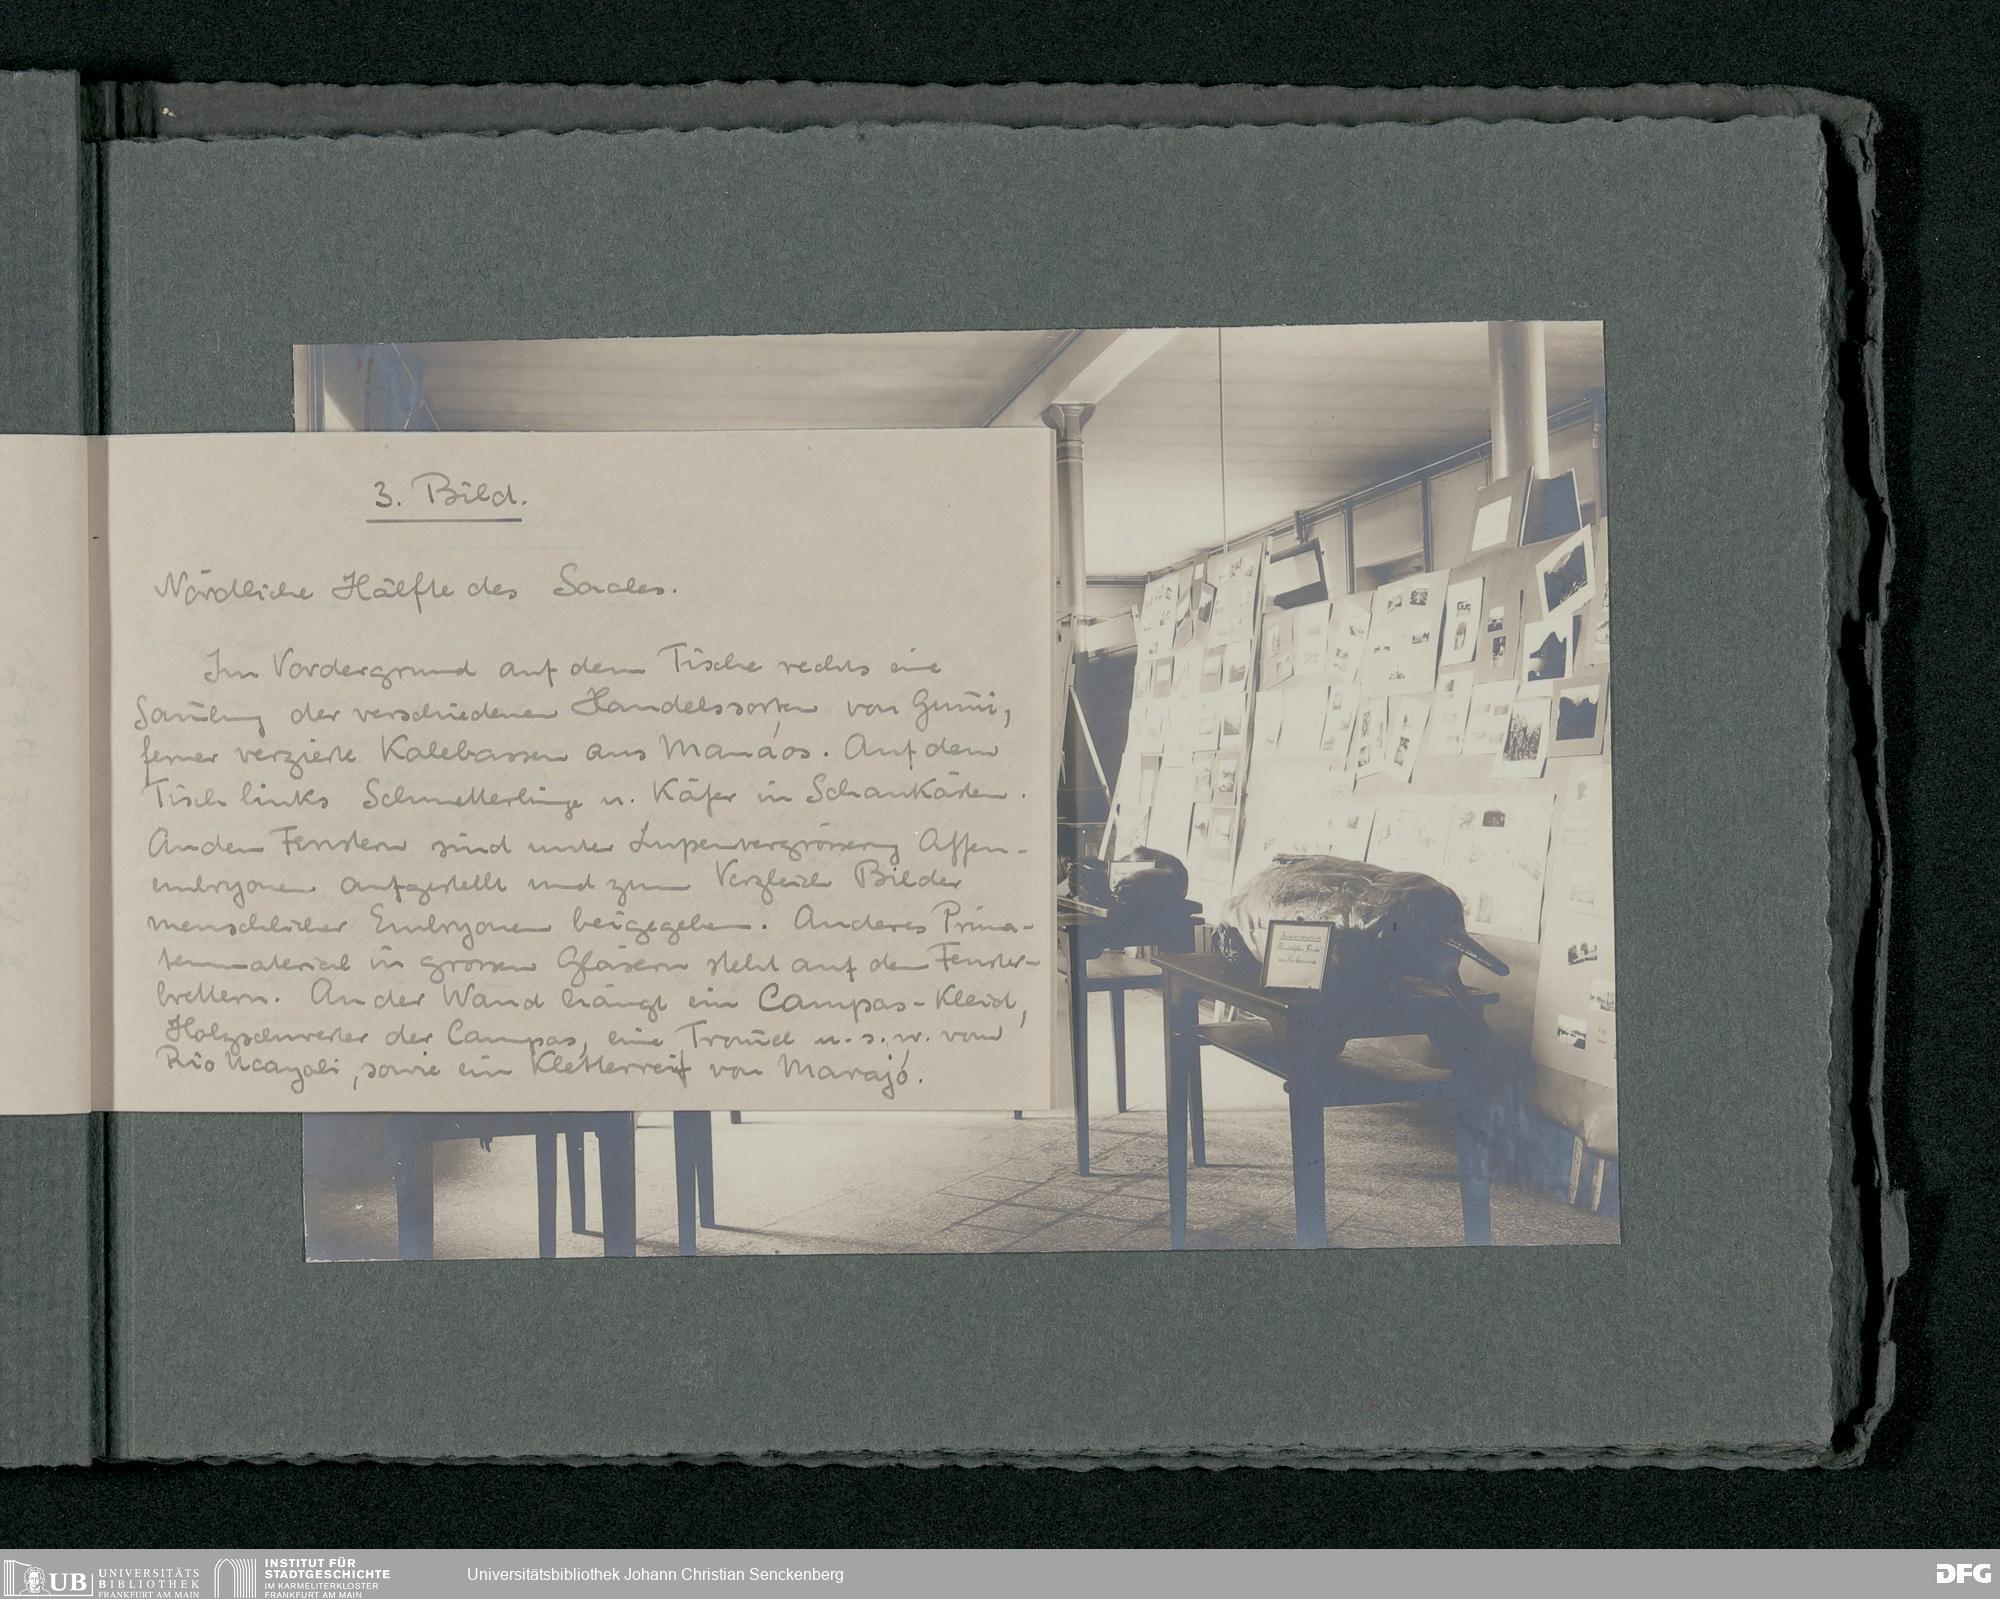 3. Bild.
Nördliche Hälfte des Saales.
Im Vordergrund auf dem Tische rechts eine
Sam̄lung der verschiedenen Handelssorten von Gum̄i,
ferner verzierte Kalebassen aus Manáos. Auf dem
Tisch links Schmetterlinge u. Käfer in Schaukästen.
An den Fenstern sind unter Lupenvergrösserung Affen-
embryonen aufgestellt und zum Vergleich Bilder
menschlicher Embryonen beigegeben. Anderes Prima-
tenmaterial in grossen Gläsern steht auf den Fenster-
brettern. An der Wand hängt ein Campas-Kleid,
Holzschwerter der Campas, eine Trom̄el u.s.w. vom
Rio Ucayali, sowie ein Kletterreif von Marajó.
UB
UNIVERSITÄTS
BIBLIOTHEK
FRANKFURT AM MAIN
INSTITUT FÜR
STADTGESCHICHTE
IM KARMELITERKLOSTER
FRANKFURT AM MAIN
Universitätsbibliothek Johann Christian Senckenberg
DFG